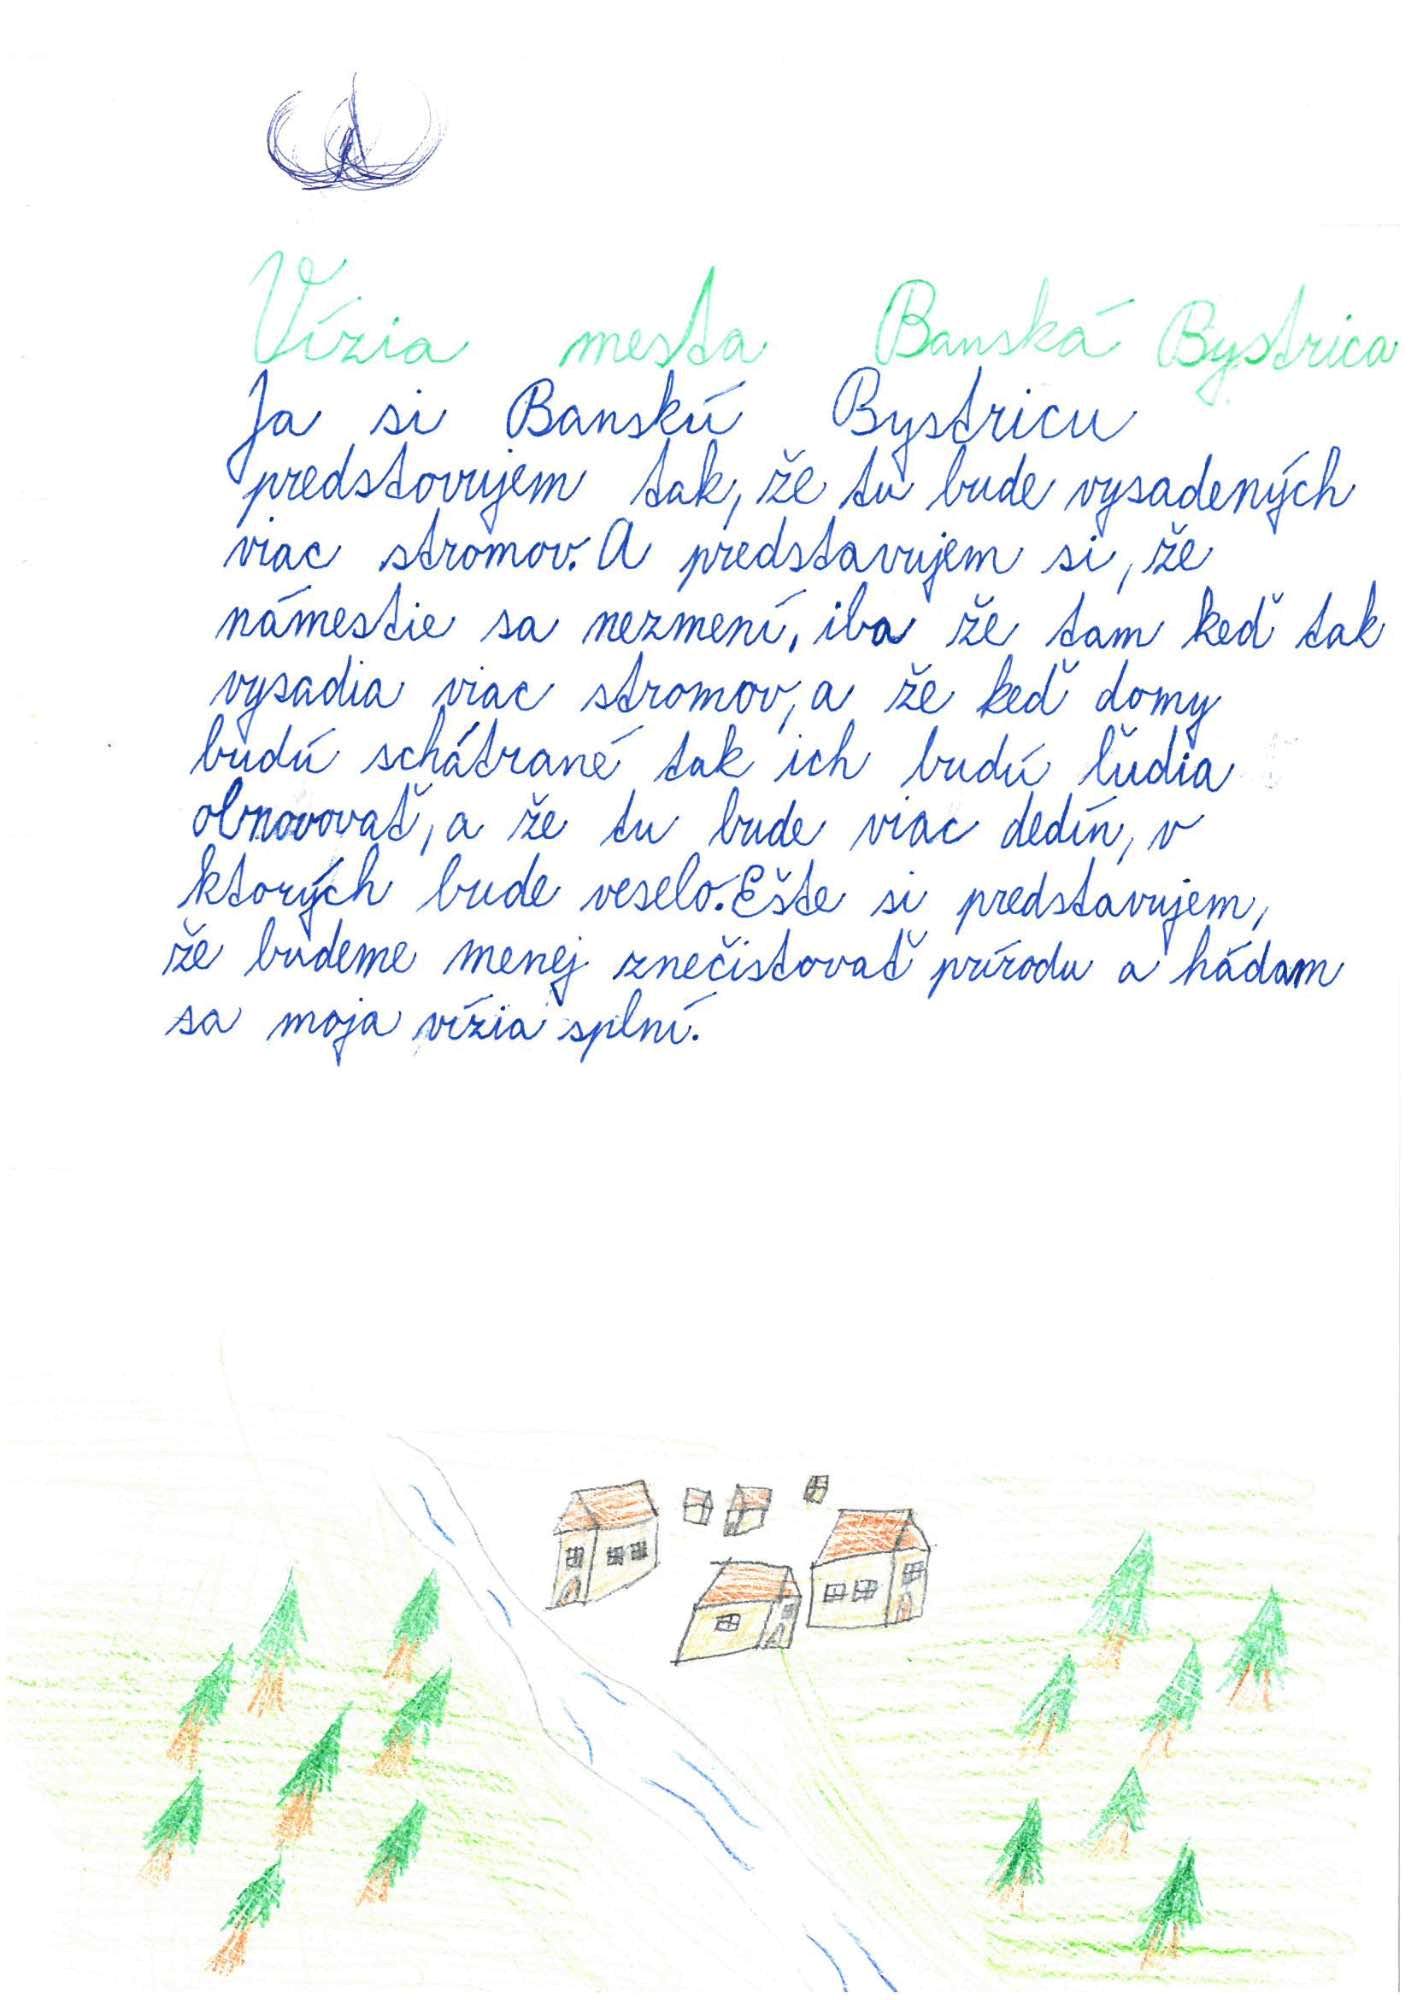 Vízia mesta Banská Bystrica
Ja si Banskú Bystricu
predstovujem tak, že tu bude vysadených
viac stromov. A predstavujem si, že
námestie sa nezmení, iba že tam keď tak
vysadia viac stromov, a že keď domy
budú schátrané tak ich budú ľudia
obnovovať, a že tu bude viac dedín, v
ktorých bude veselo. Ešte si predstavujem,
že budeme menej znečistovať prírodu a hádam
sa moja vízia splní.